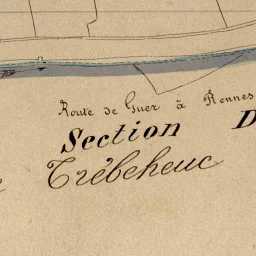 Route de Guer à Rennes
Section D
Trébeheuc